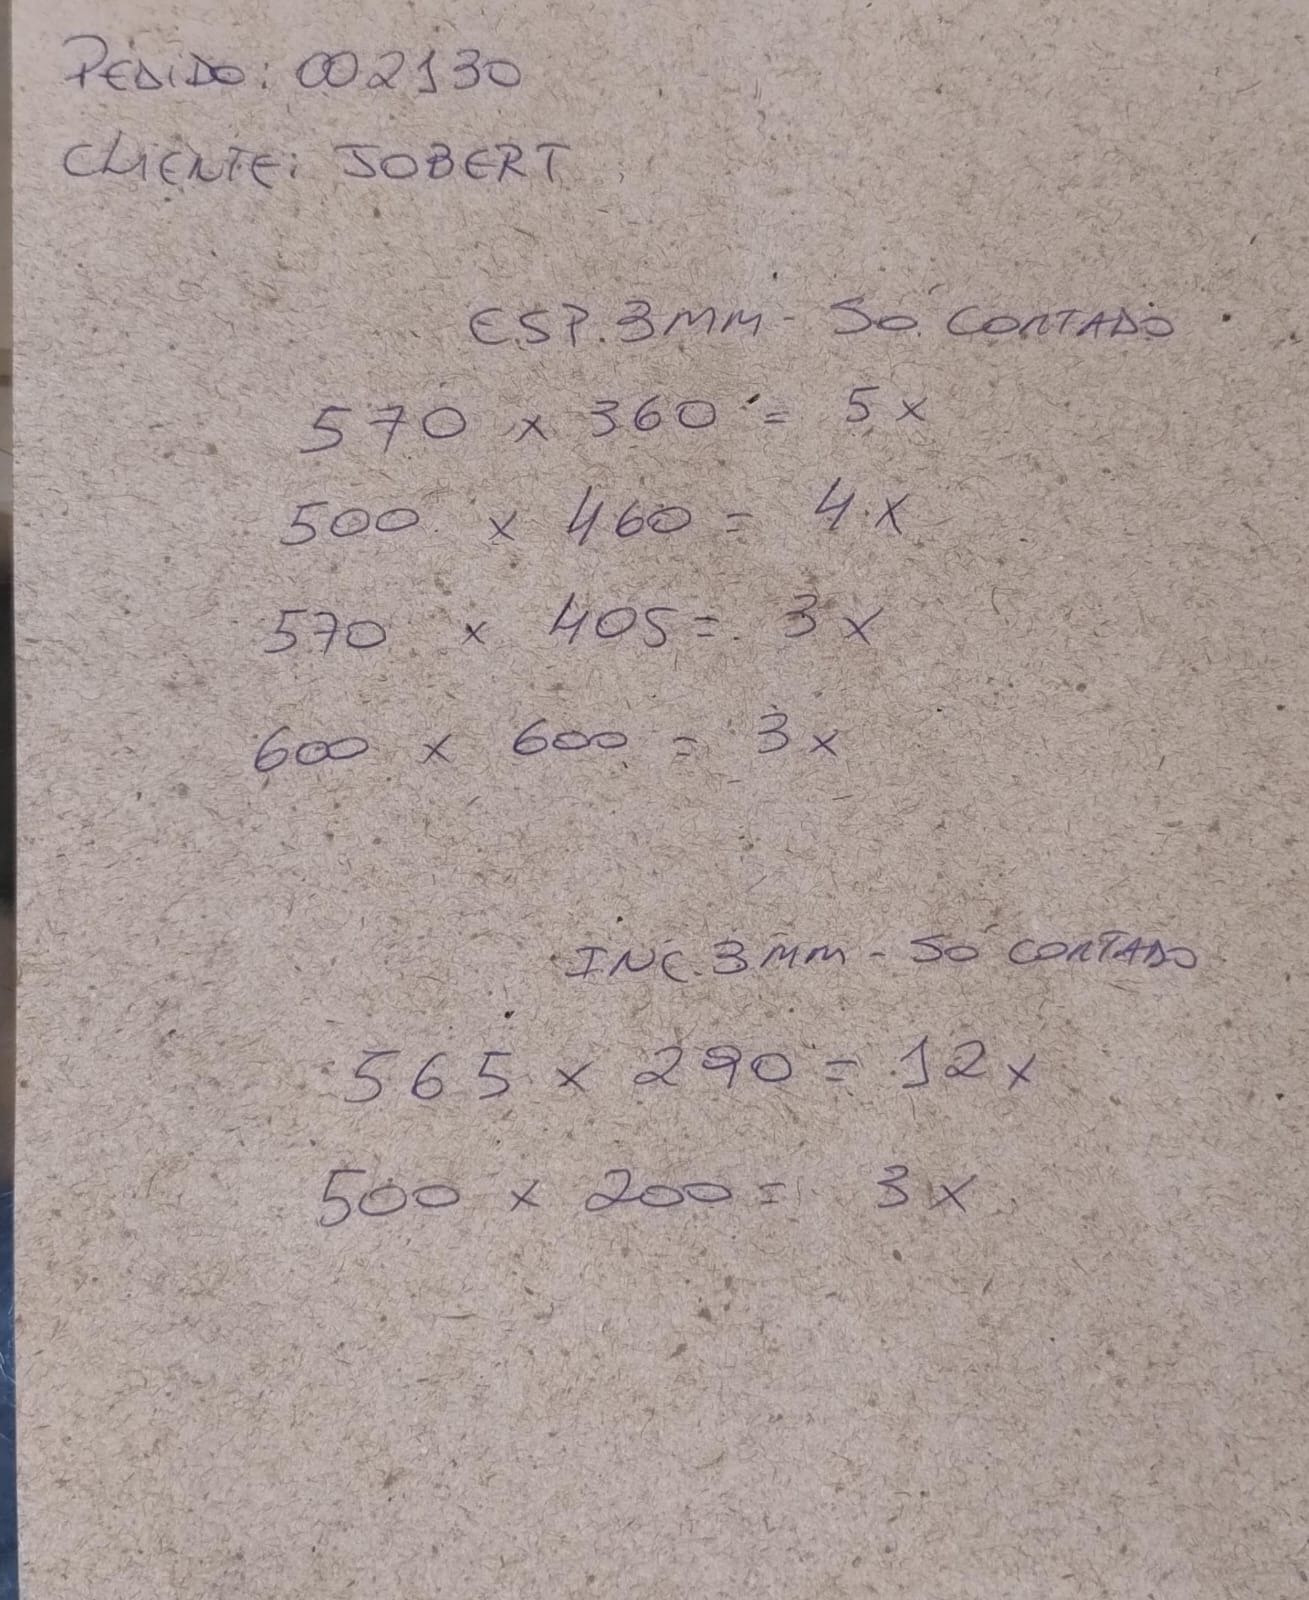 PEDIDO: 002130
CLIENTE: JOBERT
ESP. 3MM - SÓ CORTADO
570 x 360 = 5x
500 x 460 = 4x
570 x 405 = 3x
600 x 600 = 3x
INC. 3MM - SÓ CORTADO
565 x 290 = 12x
500 x 200 = 3x